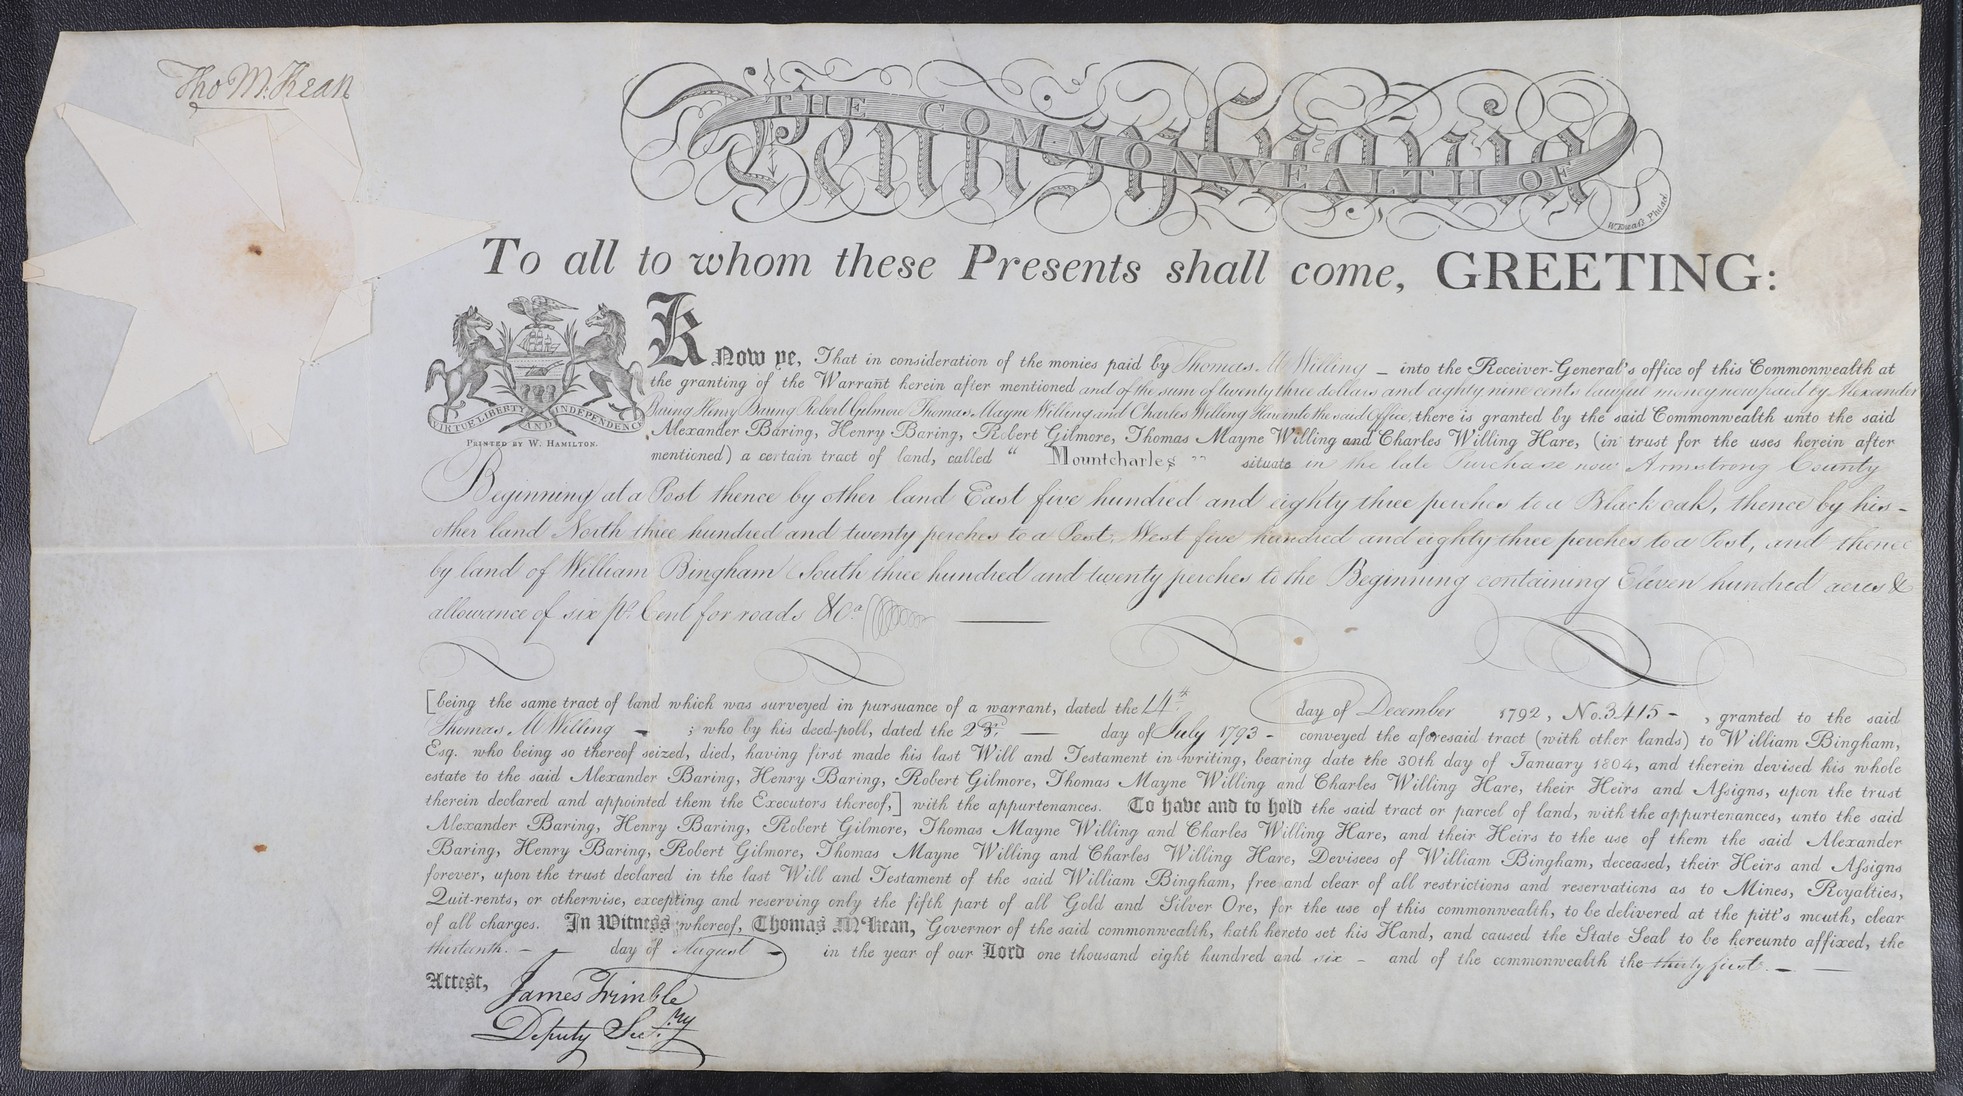 Tho M:Kean
THE COMMONWEALTH OF
Pennsylvania
W. Kneaß Philad
To all to whom these Presents shall come, GREETING:
VIRTUE LIBERTY AND INDEPENDENCE
PRINTED BY W. HAMILTON.
Know ye, That in consideration of the monies paid by Thomas M Willing – into the Receiver-General's office of this Commonwealth at
the granting of the Warrant herein after mentioned and of the sum of twenty three dollars and eighty nine cents lawful money now paid by Alexander
Baring Henry Baring Robert Gilmore Thomas Mayne Willing and Charles Willing Hare into the said Office, there is granted by the said Commonwealth unto the said
Alexander Baring, Henry Baring, Robert Gilmore, Thomas Mayne Willing and Charles Willing Hare, (in trust for the uses herein after
mentioned) a certain tract of land, called “ Mountcharles ” situate in the late Purchase now Armstrong County
Beginning at a Post thence by other land East five hundred and eighty three perches to a Black oak, thence by his –
other land North three hundred and twenty perches to a Post, West five hundred and eighty three perches to a Post, and thence
by land of William Bingham South three hundred and twenty perches to the Beginning containing Eleven hundred acres &
allowance of six pr. Cent for roads &ca
[being the same tract of land which was surveyed in pursuance of a warrant, dated the 14th day of December 1792, No. 3415 – , granted to the said
Thomas M Willing – ; who by his deed-poll, dated the 23d — day of July 1793 – conveyed the aforesaid tract (with other lands) to William Bingham,
Esq. who being so thereof seized, died, having first made his last Will and Testament in writing, bearing date the 30th day of January 1804, and therein devised his whole
estate to the said Alexander Baring, Henry Baring, Robert Gilmore, Thomas Mayne Willing and Charles Willing Hare, their Heirs and Aſsigns, upon the trust
therein declared and appointed them the Executors thereof,] with the appurtenances. To have and to hold the said tract or parcel of land, with the appurtenances, unto the said
Alexander Baring, Henry Baring, Robert Gilmore, Thomas Mayne Willing and Charles Willing Hare, and their Heirs to the use of them the said Alexander
Baring, Henry Baring, Robert Gilmore, Thomas Mayne Willing and Charles Willing Hare, Devisees of William Bingham, deceased, their Heirs and Aſsigns
forever, upon the trust declared in the last Will and Testament of the said William Bingham, free and clear of all restrictions and reservations as to Mines, Royalties,
Quit-rents, or otherwise, excepting and reserving only the fifth part of all Gold and Silver Ore, for the use of this commonwealth, to be delivered at the pitt's mouth, clear
of all charges. In Witness whereof, Thomas M'Kean, Governor of the said commonwealth, hath hereto set his Hand, and caused the State Seal to be hereunto affixed, the
thirteenth. – day of August in the year of our Lord one thousand eight hundred and six – and of the commonwealth the thirty first. –
Attest, James Trimble
Deputy Sec.ry